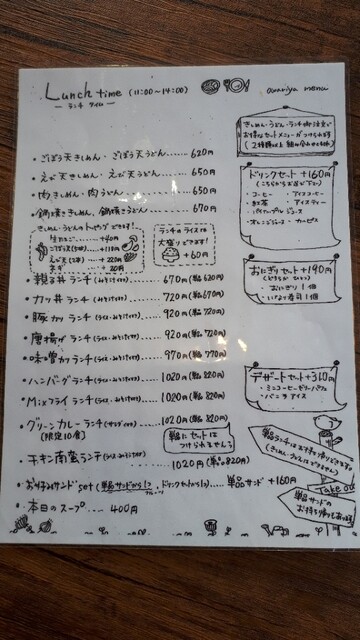 Lunch time (11:00~14:00)
ーランチ タイムー
owariya menu
きしめん・うどん・ランチ御注文で
お得なセットメニューがつけられます
(2種類以上組み合わせもOK)
・ごぼう天きしめん・ごぼう天うどん……620円
・えび天きしめん・えび天うどん……650円
・肉きしめん・肉うどん……650円
・鍋焼ききしめん、鍋焼きうどん……670円
きしめん・うどんのトッピングできます!
生たまご……+40円
ごぼう天
えび天 … +220円
ネギ … +20円
ランチのライス
大盛りできます!
+60円
・親子丼ランチ 670円(単品620円)
・カツ丼ランチ 720円(単品670円)
・豚カツランチ 920円(単品720円)
・唐揚げランチ 920円(単品720円)
・味噌カツランチ 970円(単品770円)
・ハンバーグランチ 1020円(単品820円)
・Mixフライランチ 1020円(単品820円)
・グリーンカレーランチ 1020円(単品820円)
(限定10食)
単品にセットは
つけられません
・チキン南蛮ランチ 1020円(単品820円)
・お好みサンドset(単品サンドから1つ、ドリンクセットから1つ)……単品サンド+160円
・本日のスープ……400円
ドリンクセット +160円
(こちらからお選び下さい)
・コーヒー ・アイスコーヒー
・紅茶 ・アイスティー
・パイナップルジュース
・オレンジジュース ・カルピス
おにぎりセット +190円
・おにぎり1個
・いなり寿司1個
デザートセット +310円
・ミニコーヒーゼリーパフェ
・バニラアイス
Take out
単品サンドの
お持ち帰りもあります